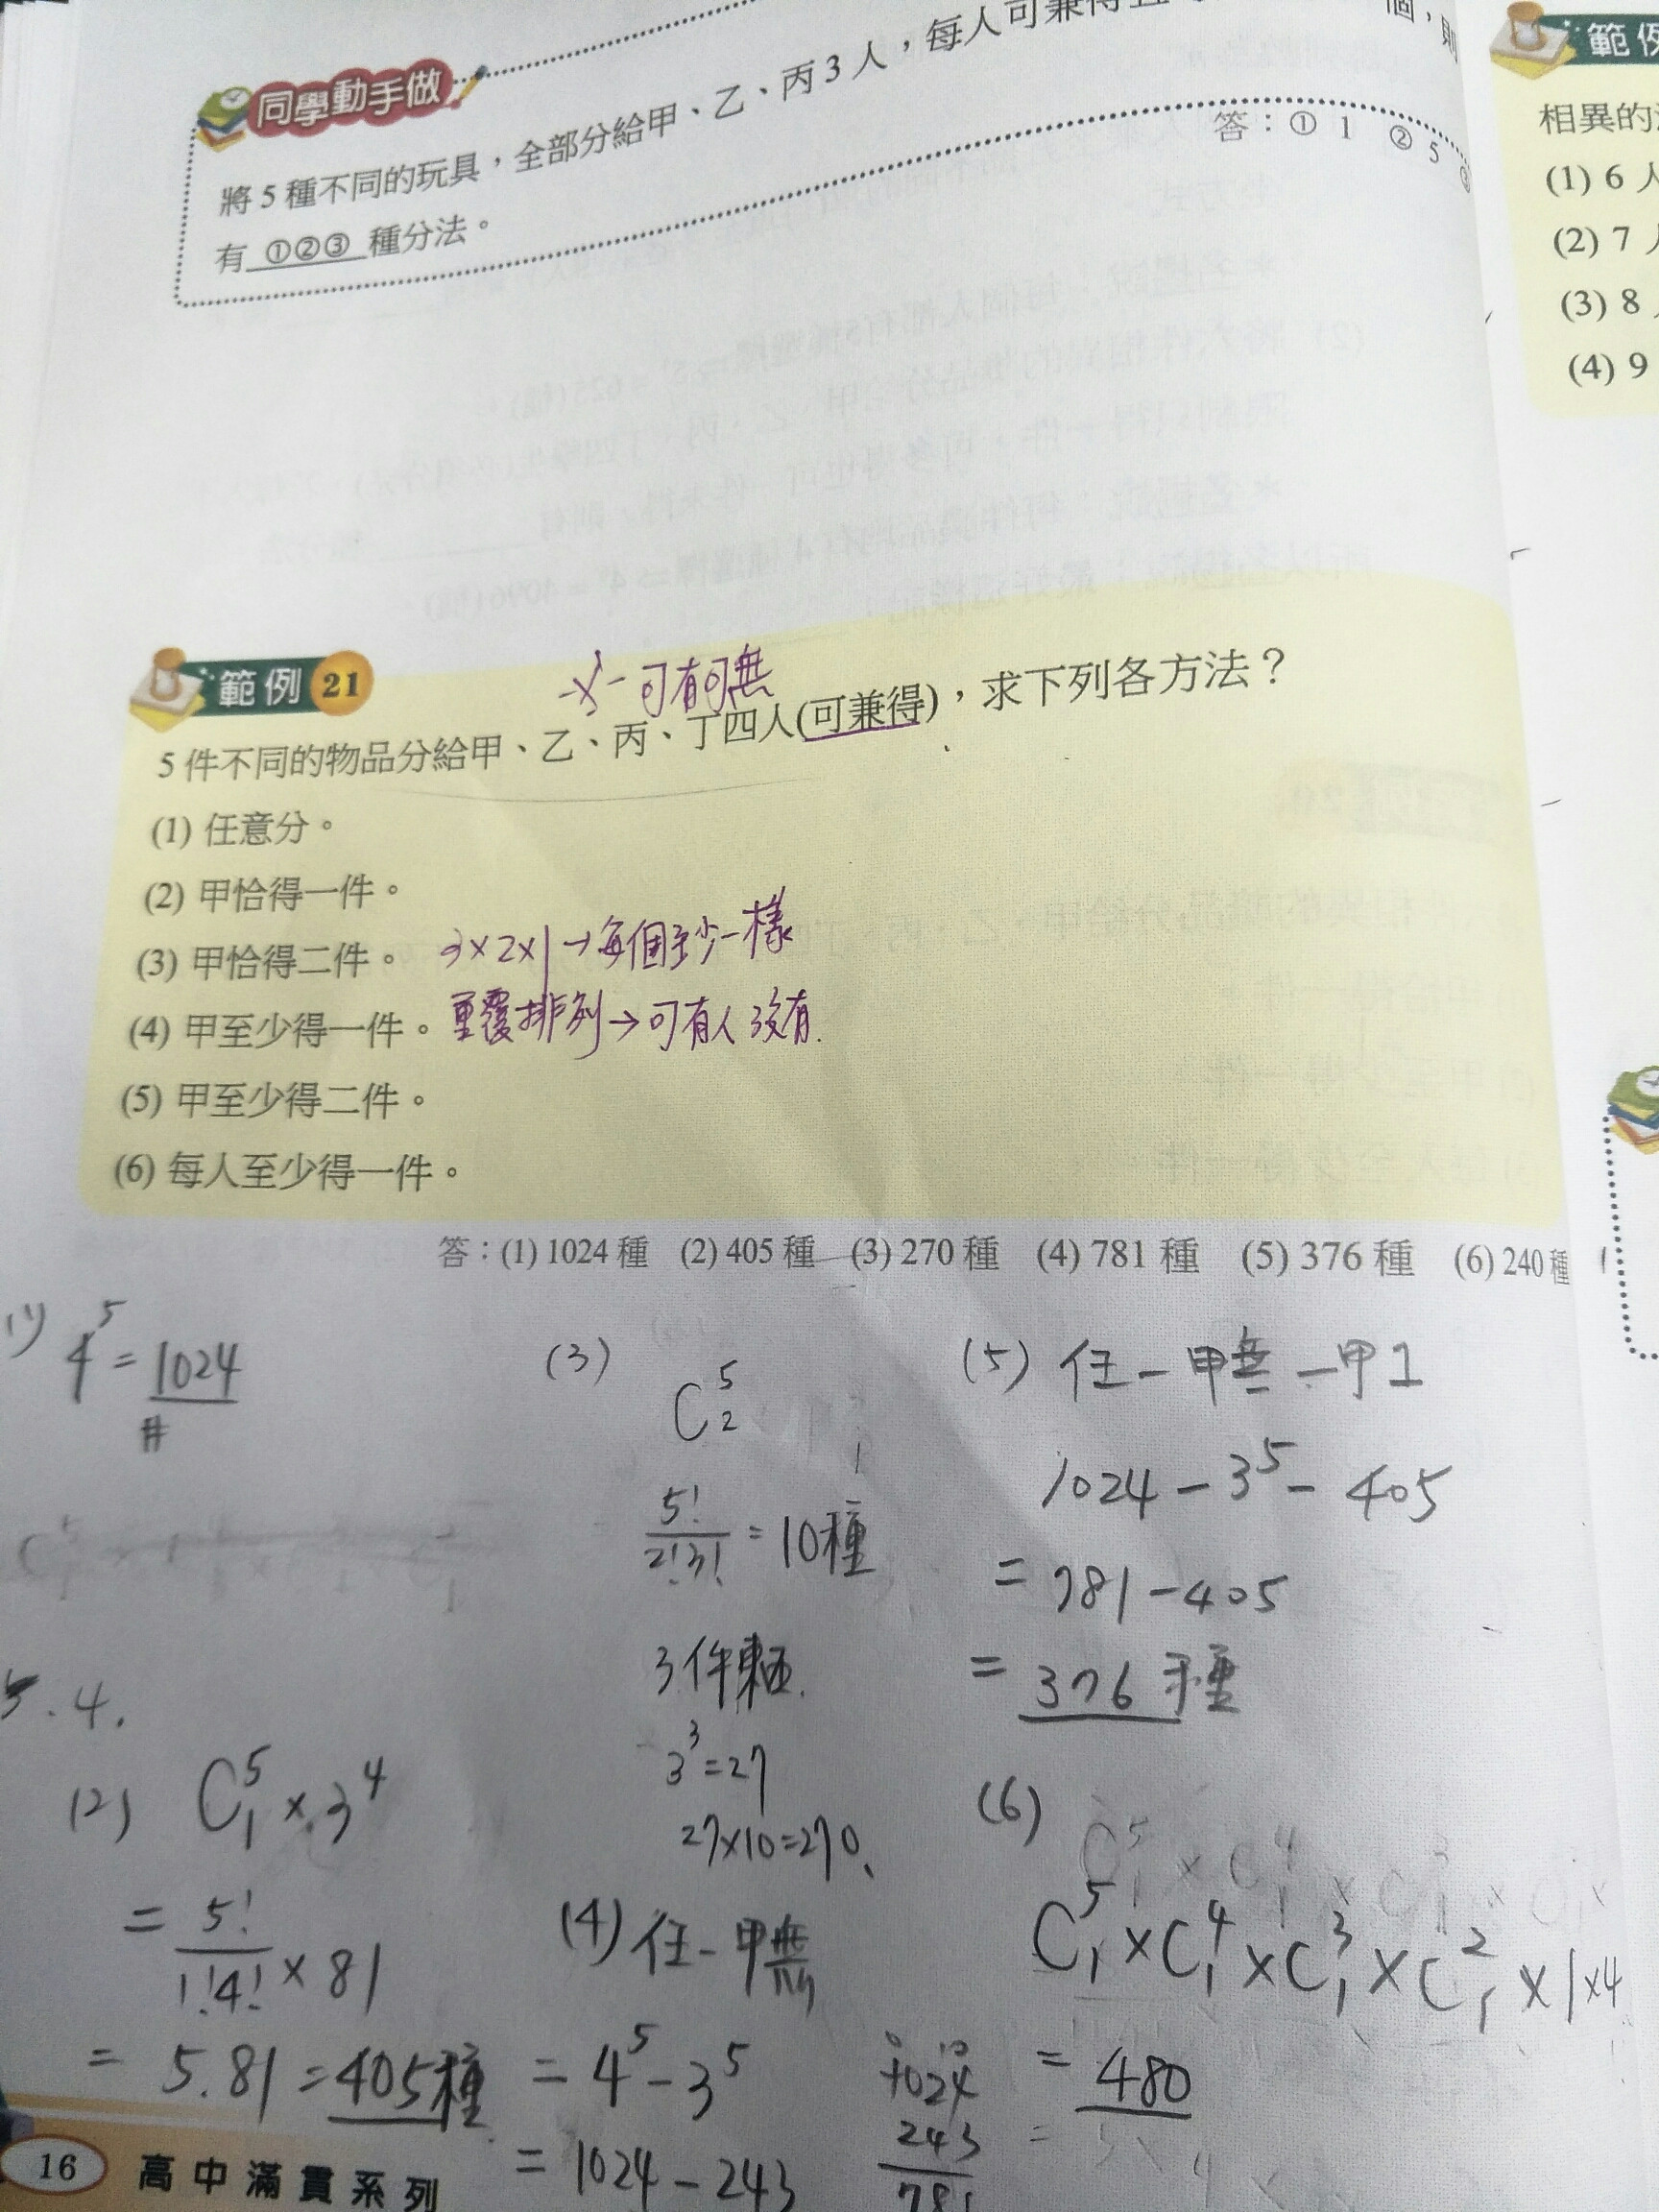 同學動手做
將 5 種不同的玩具，全部分給甲、乙、丙 3 人，每人可兼得
個，則
有 ①②③ 種分法。
答：① 1 ② 5 ③
範例 21
可有可無
5 件不同的物品分給甲、乙、丙、丁四人(可兼得)，求下列各方法？
(1) 任意分。
(2) 甲恰得一件。
(3) 甲恰得二件。
3×2×1→每個至少一樣
(4) 甲至少得一件。
重覆排列→可有人沒有.
(5) 甲至少得二件。
(6) 每人至少得一件。
答：(1) 1024 種 (2) 405 種 (3) 270 種 (4) 781 種 (5) 376 種 (6) 240 種
(1) 4⁵ = 1024
#
5.4.
(2) C⁵₁ × 3⁴
= 5!/1!4! × 81
= 5.81 = 405種
(3)
C⁵₂
5!/2!3! = 10種
3件東西.
3³=27
27×10=270、
(4) 任－甲無
= 4⁵ - 3⁵
= 1024 - 243
1024
243
781
(5) 任－甲無－甲1
1024 - 3⁵ - 405
= 781 - 405
= 376 種
(6)
C⁵₁ × C⁴₁ × C³₁ × C²₁ × 1 × 4
= 480
16 高中滿貫系列
範例
相異的
(1) 6 人
(2) 7
(3) 8
(4) 9